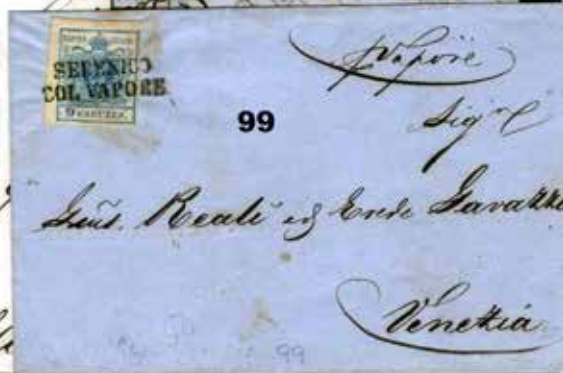 SEBENICO
COL VAPORE
9 KREUZER
99
pvapore
Sig.r
Reali ed Erede Gavazzi
Venezia
99